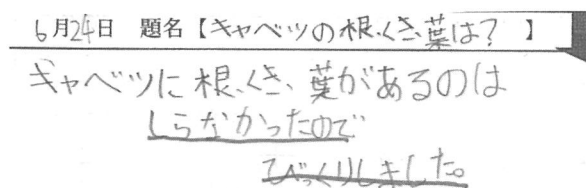 6月24日 題名【キャベツの根、くき、葉は? 】
キャベツに根、くき、葉があるのは
しらなかったので
びっくりしました。